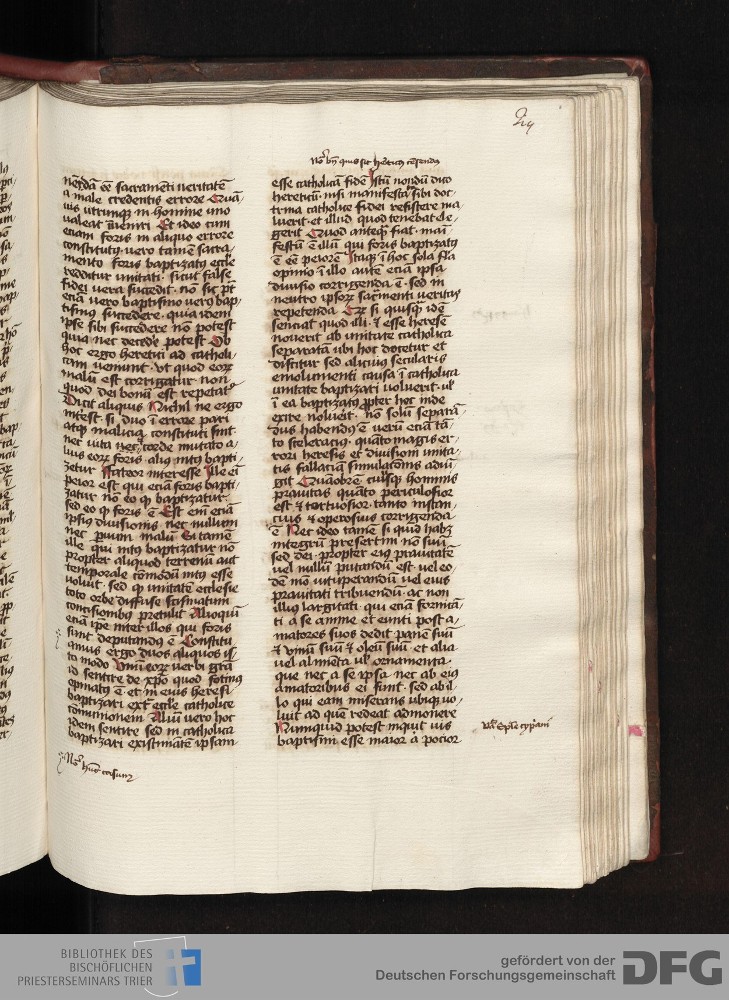 No bn quis sit hereticus censendus
nenda ee sacramenti ueritate
a male credentis errore Quā
uis utrumque in homine uno
ualeat inueniri Et ideo cum
etiam foris in aliquo errore
constitutꝯ vero tamē sacra-
mento foris baptizatꝯ eccle
redditur unitati · sicut false
fidei vera succedit · nō sic pōt
etiā vero baptismo verꝯ bap-
tismus succedere · quia idem
ipse sibi succedere nō potest
quia nec decedere potest Ob
hoc ergo heretici ad catholi-
cam ueniunt · vt quod eorꝫ
malū est corrigatur non
quod dei bonū est repetat
Dicit aliquis Nichil ne ergo
interest · si duo ī errore pari
atqꝫ malicia constituti sint
nec uita nec corde mutato a-
lius eorꝫ foris · aliꝯ intꝯ bapti-
zetur Fateor interesse Ille eī
peior est qui eciā foris bapti-
zatur nō eo ꝙ baptizatur ·
sed eo ꝙ foris ē Est enī etiā
ipsius diuisionis nec nullum
nec paruum malū Si tamē
ille qui intꝯ baptizatur nō
propter aliquod terrenū aut
temporale cōmodū intꝯ esse
uoluit · sed ꝙ unitatē ecclesie
toto orbe diffuse scismatum
concisionibus pretulit Alioqui
etiā ipe inter illos qui foris
sunt deputandus ē Constitu
amus ergo duos aliquos is-
to modo Vnū eorꝫ verbi grā
id sentire de xp̄o quod fotinꝯ
opinatꝯ ē et in eius heresi
baptizari extᵃ eccle catholice
cōmunionem Aliū vero hoc
idem sentire sed in catholica
baptizari existimātē ipsam
No hūc casum
esse catholicā fidē Istū nondū dico
hereticū · nisi manifestata sibi doc-
trina catholice fidei resistere ma-
luerit · et illud quod tenebat ele-
gerit Quod anteqꝫ fiat · mani
festū ē illū qui foris baptizatꝯ
ē eē peiorē Itaqꝫ ī hoc sola fla
opinio ī illo autē eciā ipsa
diuisio corrigenda ē · sed in
neutro ipsorꝫ sacramenti ueritas
repetenda Ceterꝫ si quisqꝫ idē
senciat quod illi · et esse heresē
nouerit ab unitate catholica
separatā ubi hoc docetur et
discitur sed alicuius secularis
emolumenti causa ī catholica
unitate baptizari uoluerit · ul
ī ea baptizatꝯ ꝓpter hoc inde
exire noluerit · nō solū separa-
dus habendꝯ ē uerū etiā tā-
to sceleratiꝯ · quāto magis er-
rori heresis et diuisioni unita-
tis fallaciā simulacionis adiū-
git Quāobrē cuiusqꝫ hominis
prauitas quāto periculosior
est et tortuosior · tanto instan-
cius et operosius corrigenda
ē Nec ideo tamē si quid habꝫ
integrū presertim nō suū
sed dei · propter eiꝯ prauitatē
uel nullū putandū est · uel eo-
dē mō uituperandū uel eius
prauitati tribuendū · ac non
illius largitati · qui eciā fornicā-
ti a se anime et eunti post a-
matores suos dedit panē suū
et vinū suū et oleū suū · et alia
uel alimēta ul ornamenta ·
que nec a se ipsa nec ab eiꝯ
amatoribus ei sunt · sed ab il-
lo qui eam miserans ubiqꝫ uo-
luit ad quē redeat admonere
Numquid potest inquit uis
baptismi esse maior a pocior
Vᵃ Eple cypriani
BIBLIOTHEK DES
BISCHÖFLICHEN
PRIESTERSEMINARS TRIER
gefördert von der
Deutschen Forschungsgemeinschaft
DFG